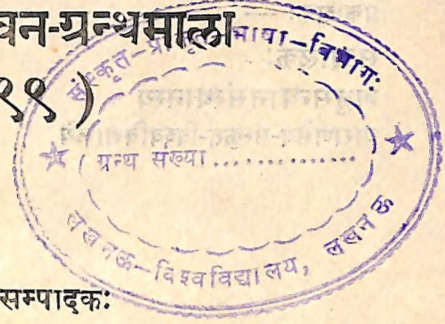 वन-ग्रन्थमाला
९९ )
संस्कृत-प्राकृत भाषा-विभागः
( ग्रन्थ संख्या .................. )
लखनऊ-विश्वविद्यालय, लखनऊ
सम्पादकः